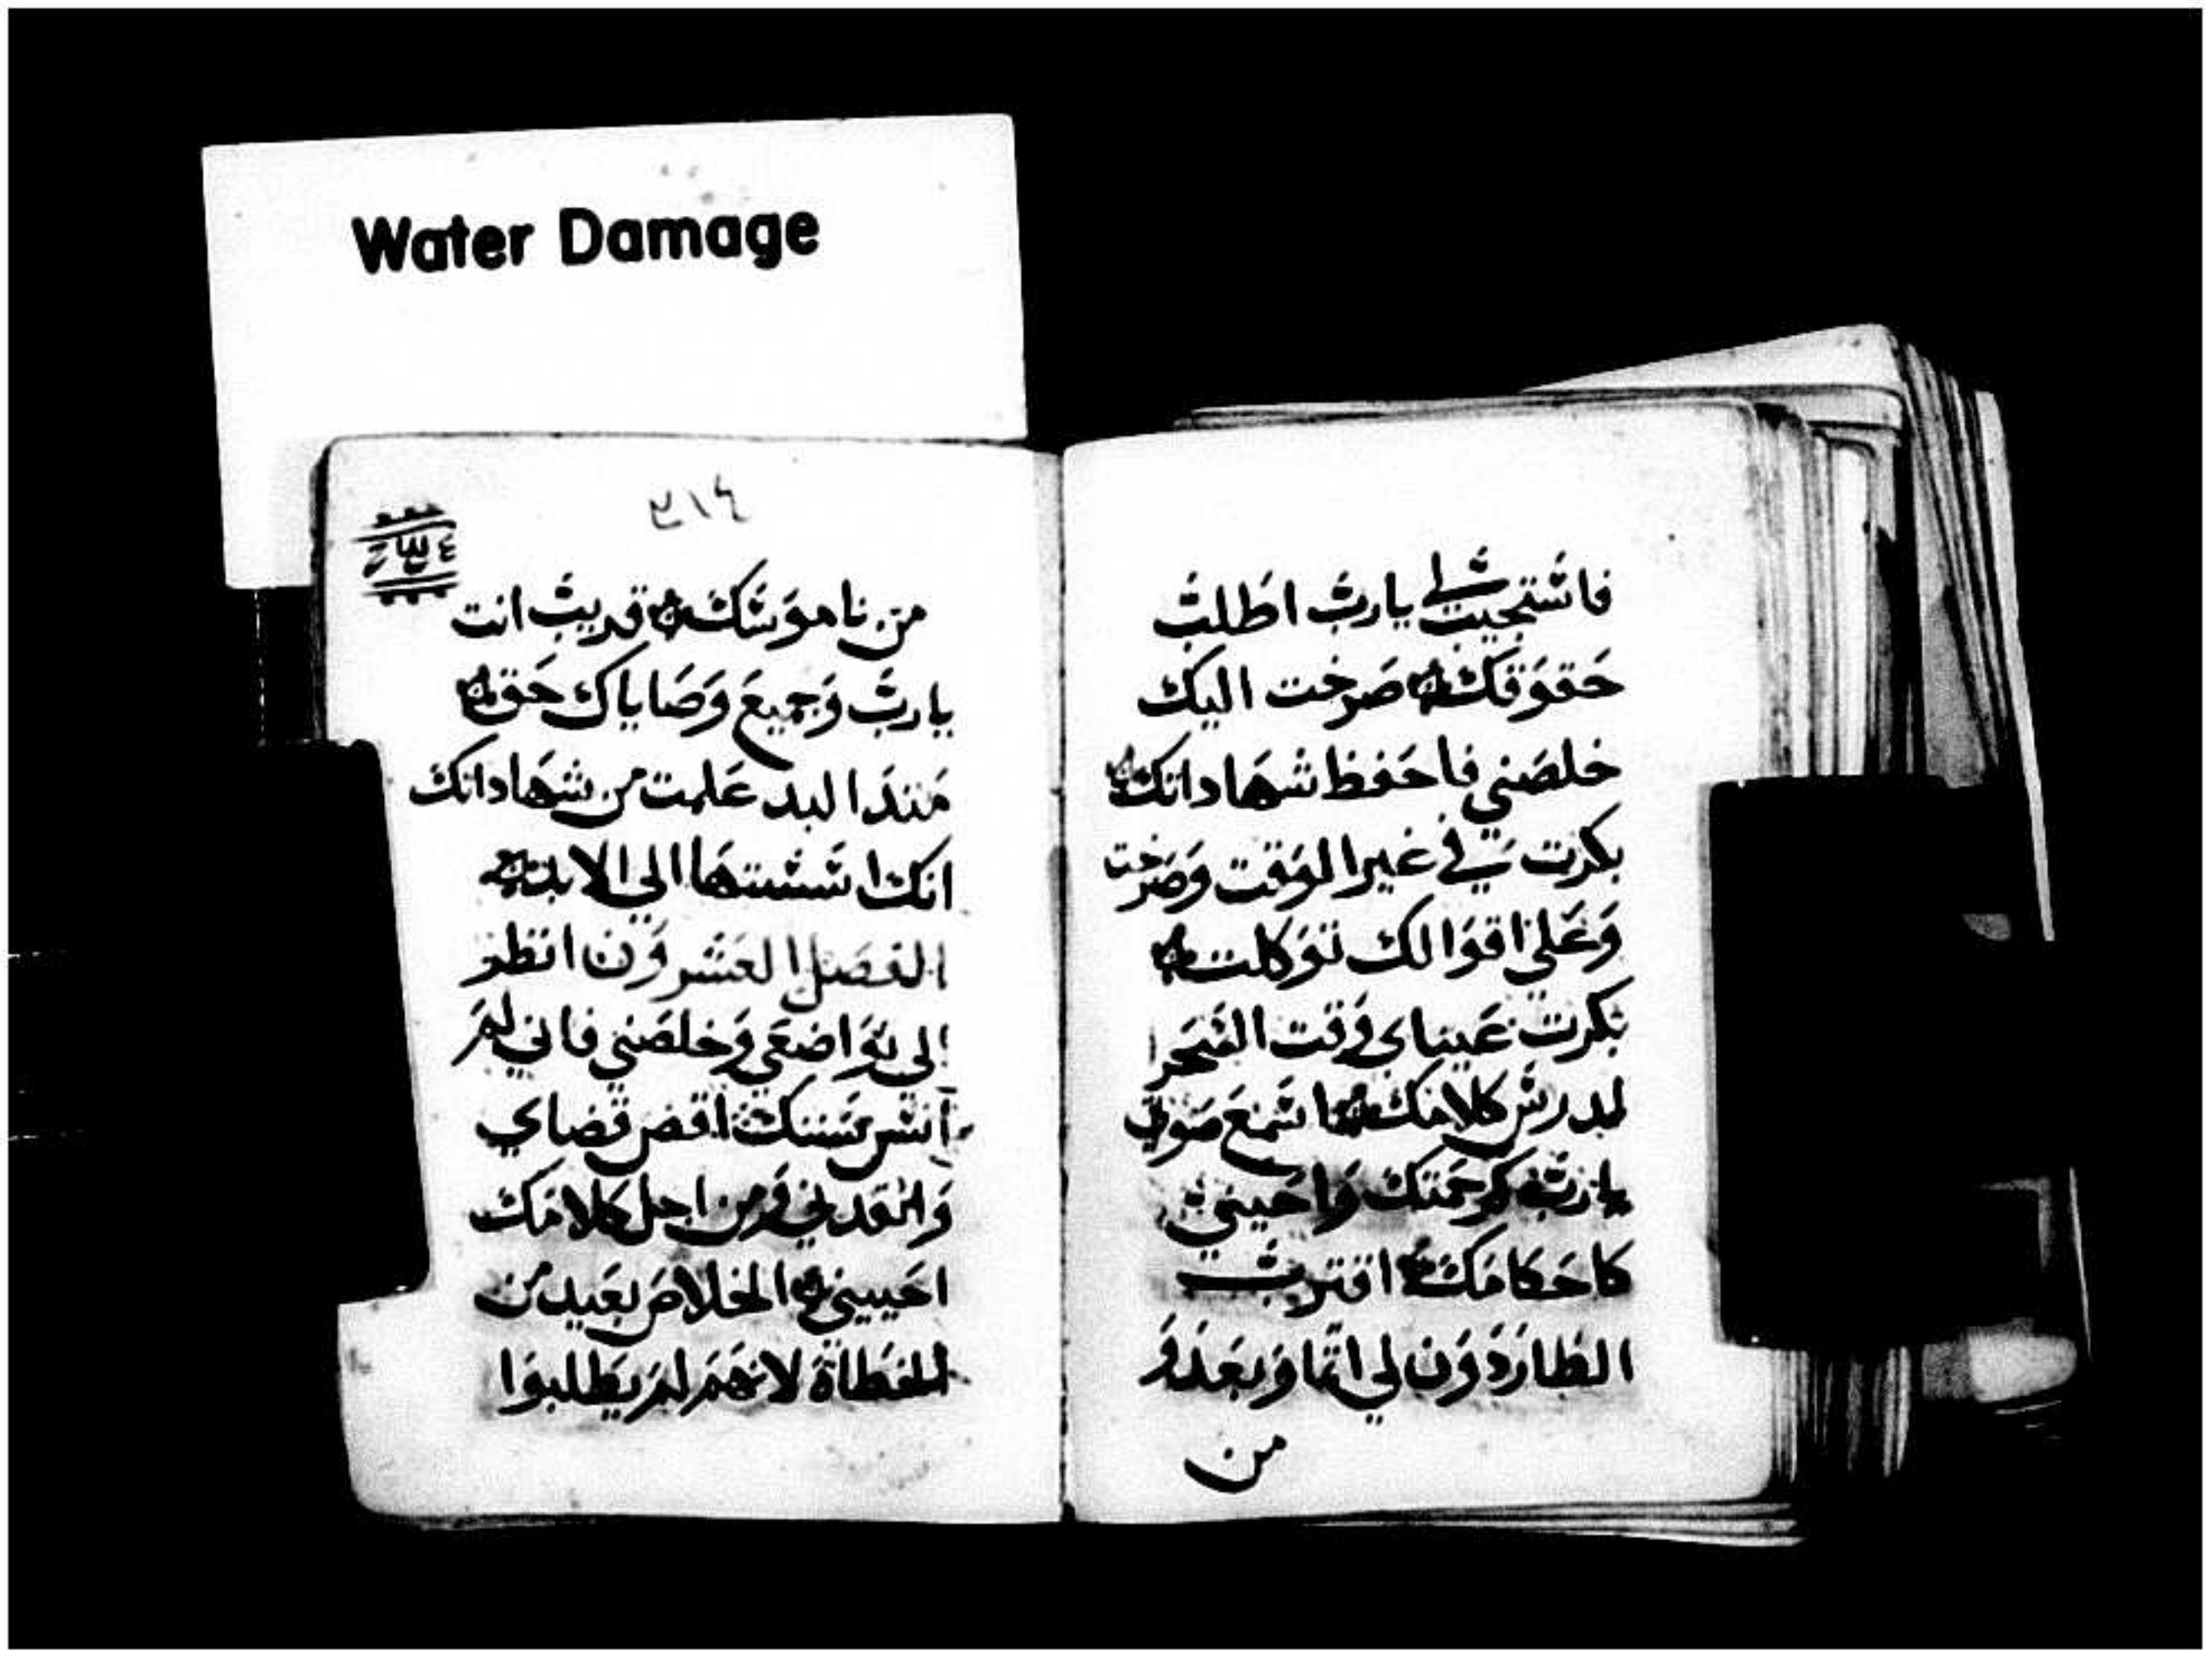 Water Damage
فاستجيب لي يارب اطلب
حقوقك صرخت اليك
خلصني فاحفظ شهاداتك
بكرت في غير الوقت وصرخت
وعلى اقوالك توكلت
بكرت عيناي وقت السحر
لدرس كلامك اسمع صوتي
يارب كرحمتك واحييني
كاحكامك اقتربت
الطاردون لي اثما وبعدو
من
٣١٤
من ناموسك قريب انت
يارب وجميع وصاياك حق
منذ البد علمت من شهاداتك
انك اسستها الى الابد
الفصل العشرون انظر
الى تواضعي وخلصني فاني لم
انس سننك اقض قضاي
وانقدني ومن اجل كلامك
احييني الخلاص بعيد من
الخطاة لانهم لم يطلبوا